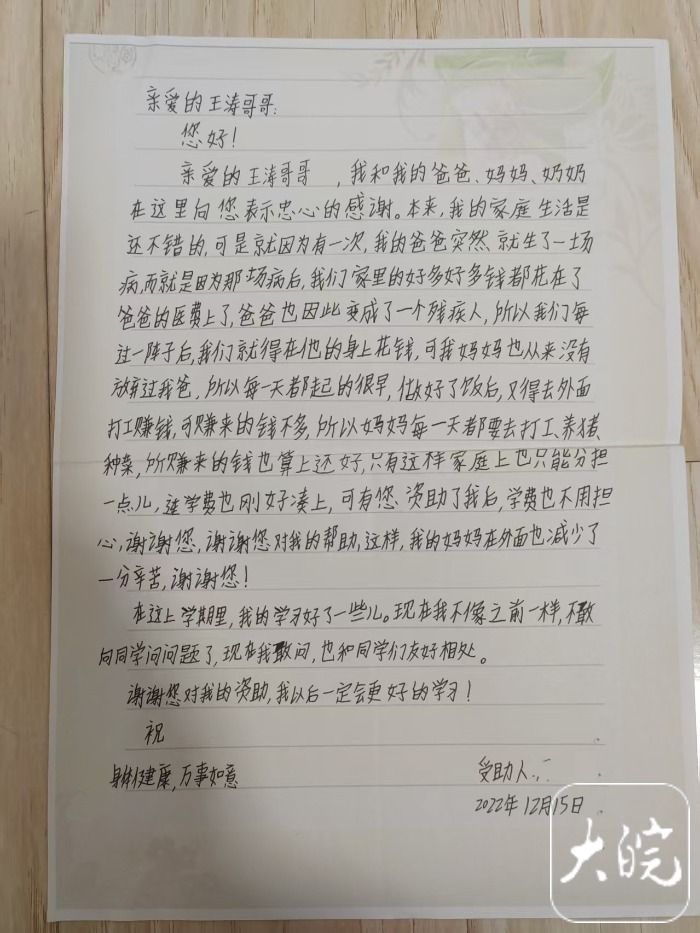 亲爱的王涛哥哥:
您好!
亲爱的王涛哥哥 ,我和我的爸爸、妈妈、奶奶
在这里向您表示忠心的感谢。本来,我的家庭生活是
还不错的,可是就因为有一次,我的爸爸突然就生了一场
病,而就是因为那场病后,我们家里的好多好多钱都花在了
爸爸的医费上了,爸爸也因此变成了一个残疾人,所以我们每
过一阵子后,我们就得在他的身上花钱,可我妈妈也从来没有
放弃过我爸,所以每一天都起的很早,做好了饭后,又得去外面
打工赚钱,可赚来的钱不多,所以妈妈每一天都要去打工、养猪、
种菜,所赚来的钱也算上还好,只有这样家庭上也只能分担
一点儿,连学费也刚好凑上,可有您资助了我后,学费也不用担
心,谢谢您,谢谢您对我的帮助,这样,我的妈妈在外面也减少了
一分辛苦,谢谢您!
在这上学期里,我的学习好了一些儿。现在我不像之前一样,不敢
向同学问问题了,现在我敢问,也和同学们友好相处。
谢谢您对我的资助,我以后一定会更好的学习!
祝
身体健康,万事如意
受助人:
2022年12月15日
大皖